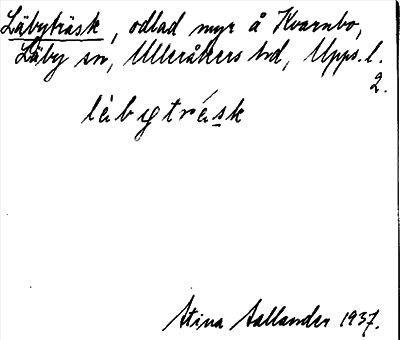 Läbyträsk, odlad myr å Kvarnbo,
Läby sn, Ulleråkers hd, Upps. l.
2.
làbytrǻsk
Stina Sallander 1937.